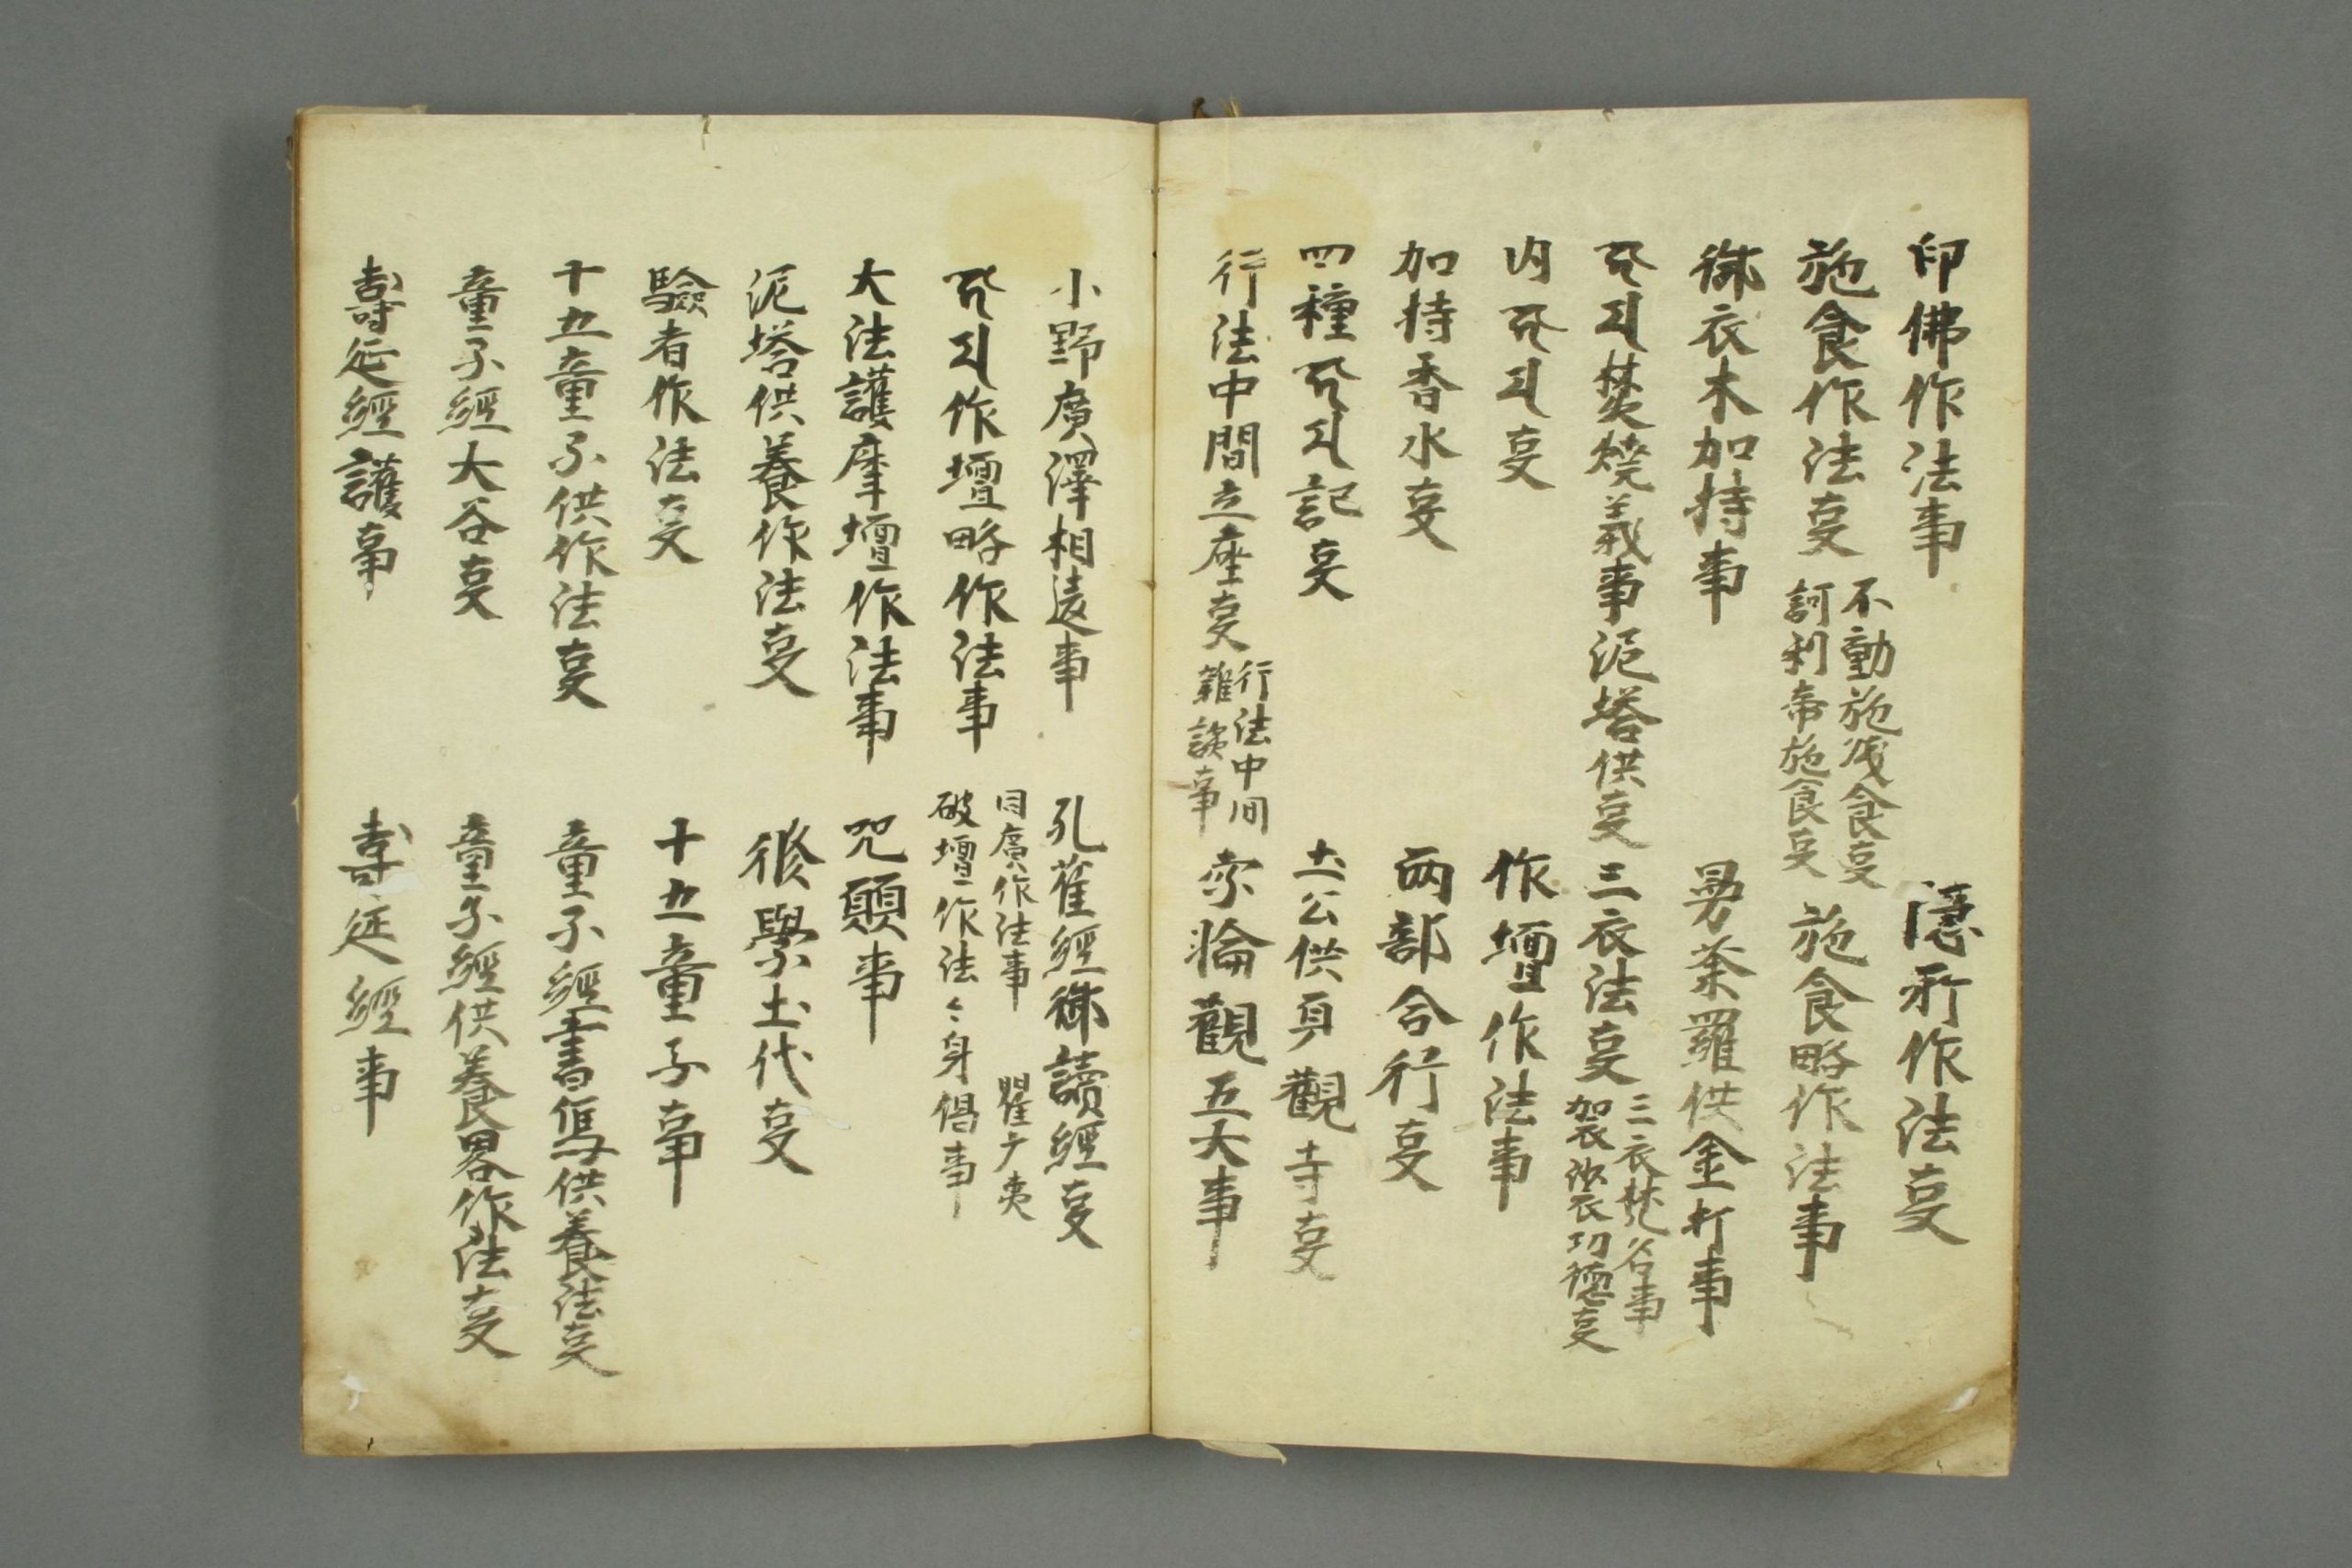 印佛作法事
隱形作法㕝
施食作法㕝
不動施残食㕝
訶利帝施食㕝
施食略作法事
御衣木加持事
曼荼羅供金打事
𑖮𑖺𑖦焚燒義事
泥塔供㕝
三衣法㕝
三衣梵名事
袈裟功德㕝
内𑖮𑖺𑖦㕝
作壇作法事
加持香水㕝
兩部合行㕝
四種𑖮𑖺𑖦記㕝
土公供
觀寺㕝
行法中間立座㕝
行法中间
雜談事
字輪觀五大事
小野廣澤相違事
孔雀經御讀經㕝
𑖮𑖺𑖦作壇略作法事
同廣作法事
破壇作法
大法護摩壇作法事
咒願事
泥塔供養作法㕝
修學土代㕝
驗者作法㕝
十五童子事
十五童子供作法㕝
童子經書寫供養法㕝
童子經大谷㕝
童子經供養畧作法㕝
壽延經護事
壽延經事